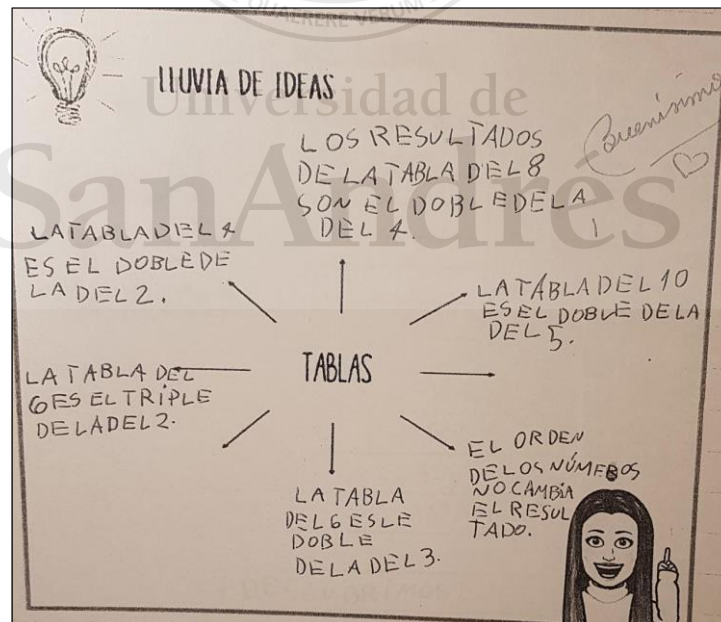 QUAERERE VERUM
LLUVIA DE IDEAS
Universidad de
SanAndrés
Buenísimo
LOS RESULTADOS
DE LA TABLA DEL 8
SON EL DOBLE DE LA
DEL 4.
LA TABLA DEL 4
ES EL DOBLE DE
LA DEL 2.
LA TABLA DEL 10
ES EL DOBLE DE LA
DEL 5.
TABLAS
LA TABLA DEL
6 ES EL TRIPLE
DE LA DEL 2.
EL ORDEN
DE LOS NÚMEROS
NO CAMBIA
EL RESUL
TADO.
LA TABLA
DEL 6 ES LE
DOBLE
DE LA DEL 3.